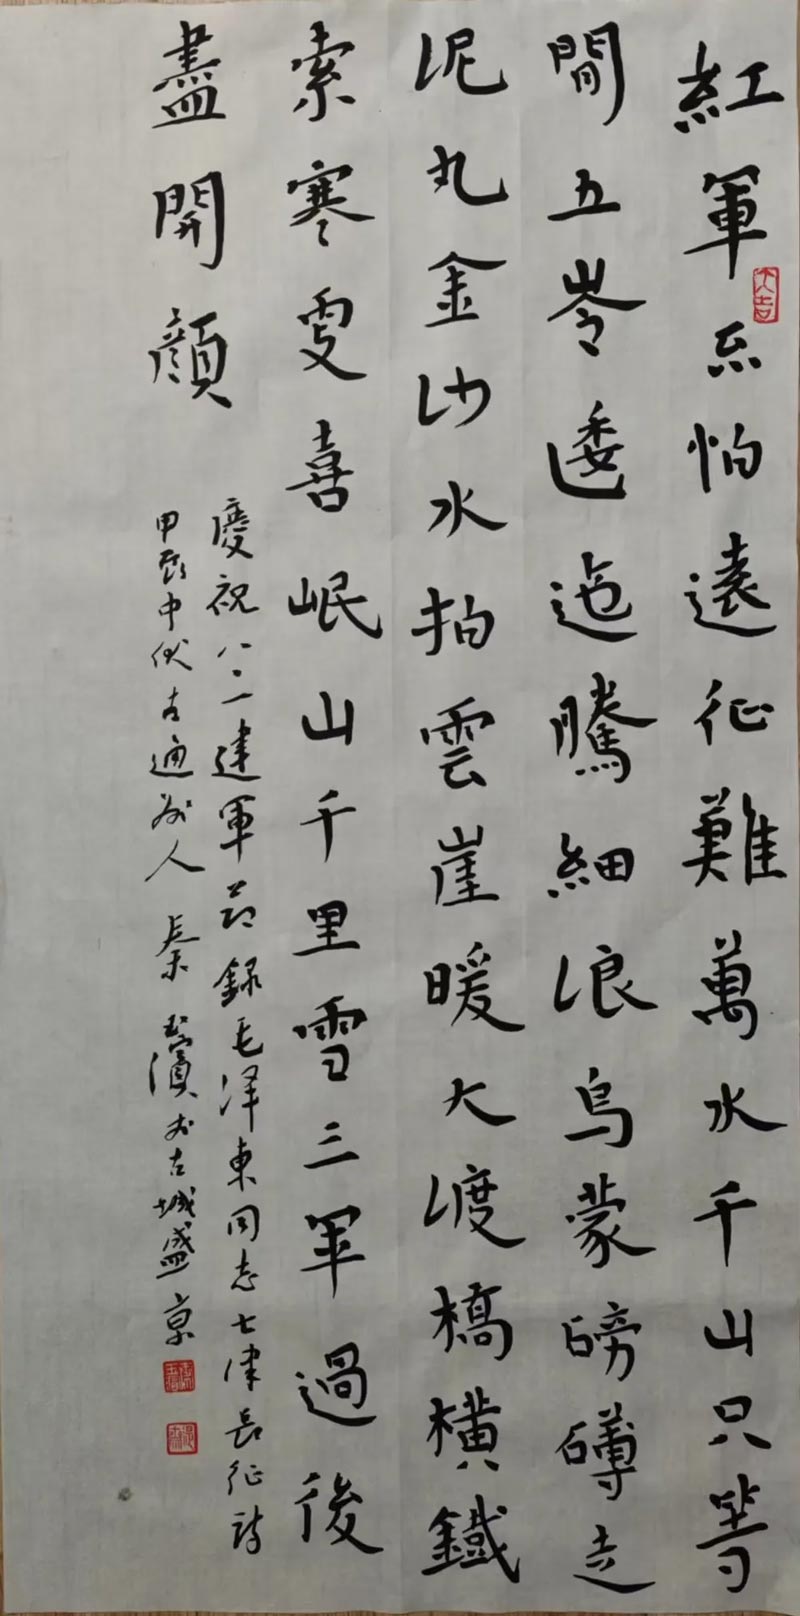 紅軍不怕遠征難萬水千山只等
大吉
閒五岺逶迤騰細浪烏蒙磅礡走
泥丸金沙水拍雲崖暖大渡橋橫鐵
索寒更喜岷山千里雪三軍過後
盡開顏
慶祝八一建軍节錄毛泽東同志七律長征诗
甲辰中伏古通州人秦玉濱於古城盛京